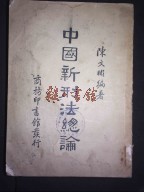 陳文彬編著
中國新刑法總論
商務印書館發行